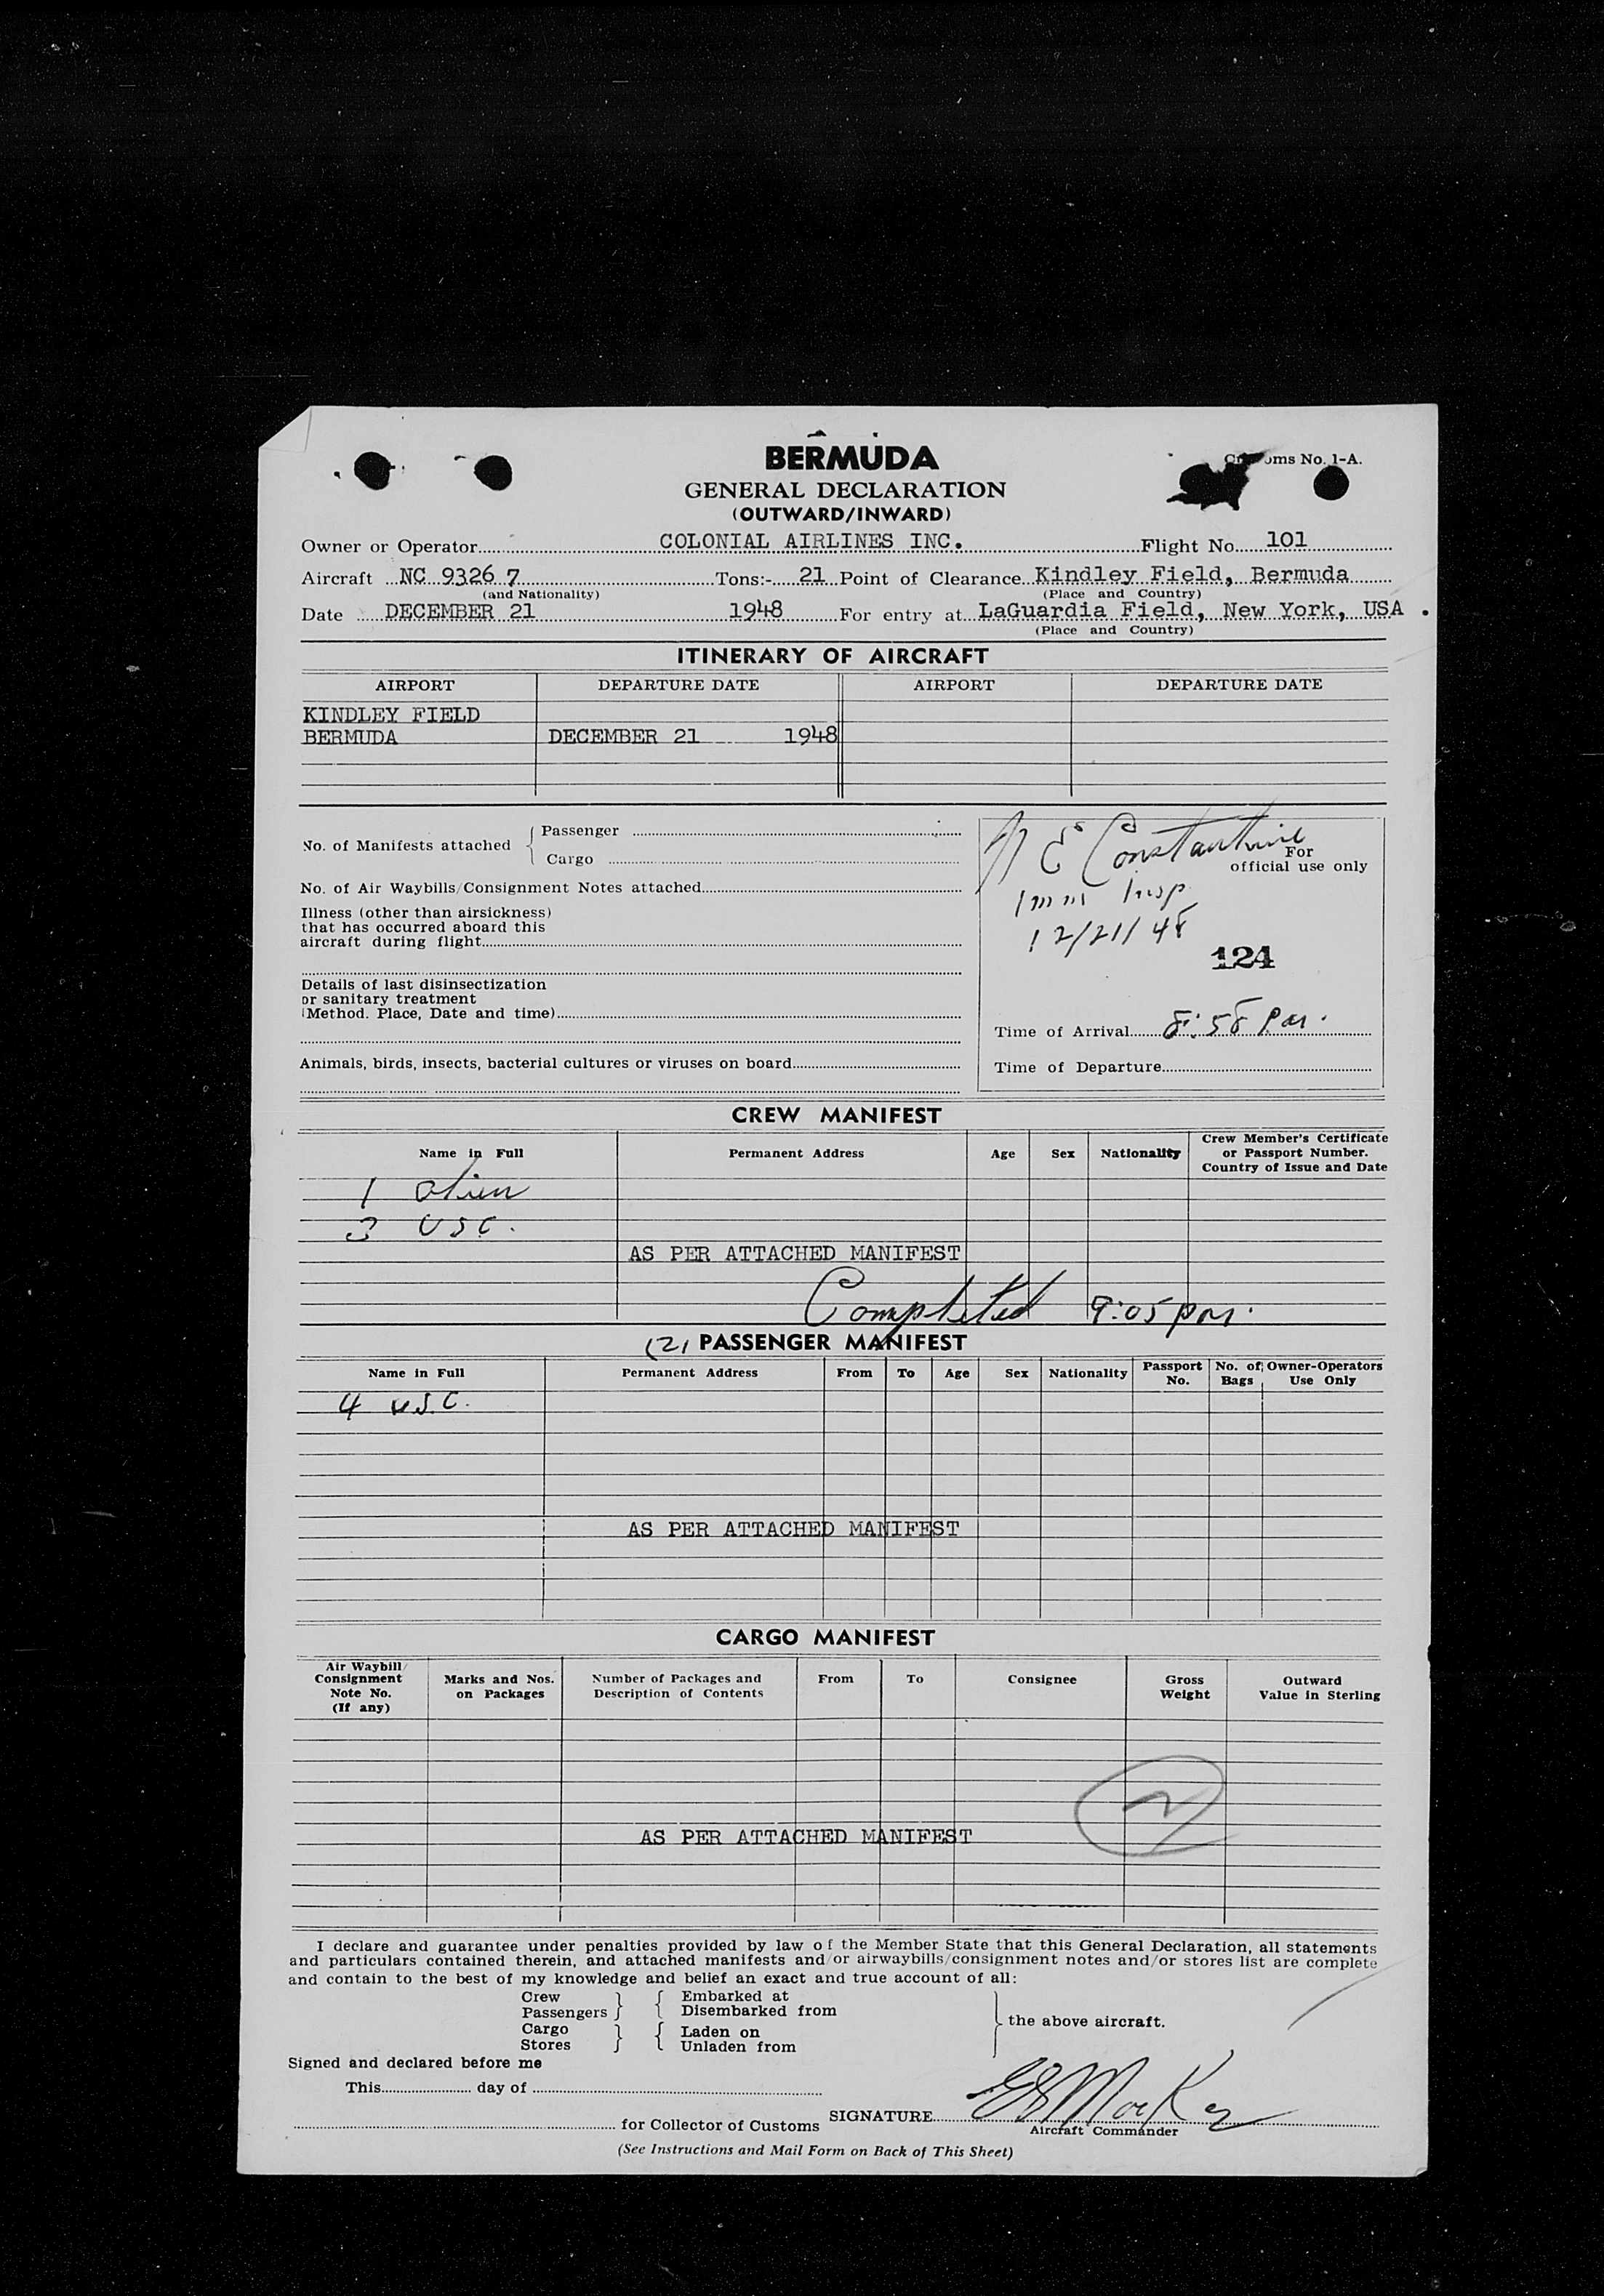 BERMUDA
Customs No. 1-A.
GENERAL DECLARATION
(OUTWARD/INWARD)
Owner or Operator COLONIAL AIRLINES INC. Flight No. 101
Aircraft NC 9326 7 Tons:- 21 Point of Clearance Kindley Field, Bermuda
(and Nationality) (Place and Country)
Date DECEMBER 21 1948 For entry at LaGuardia Field, New York, USA .
(Place and Country)
ITINERARY OF AIRCRAFT
AIRPORT DEPARTURE DATE AIRPORT DEPARTURE DATE
KINDLEY FIELD
BERMUDA DECEMBER 21 1948
No. of Manifests attached { Passenger
Cargo
No. of Air Waybills/Consignment Notes attached
Illness (other than airsickness)
that has occurred aboard this
aircraft during flight
Details of last disinsectization
or sanitary treatment
(Method. Place, Date and time)
Animals, birds, insects, bacterial cultures or viruses on board
E Constantine
For
official use only
Imm Insp
12/21/48
124
Time of Arrival 8:58 pm.
Time of Departure
CREW MANIFEST
Name in Full Permanent Address Age Sex Nationality Crew Member's Certificate or Passport Number. Country of Issue and Date
1 alien
3 USC.
AS PER ATTACHED MANIFEST
Completed 9:05 pm.
(2) PASSENGER MANIFEST
Name in Full Permanent Address From To Age Sex Nationality Passport No. No. of Bags Owner-Operators Use Only
4 USC.
AS PER ATTACHED MANIFEST
CARGO MANIFEST
Air Waybill/ Consignment Note No. (If any) Marks and Nos. on Packages Number of Packages and Description of Contents From To Consignee Gross Weight Outward Value in Sterling
2
AS PER ATTACHED MANIFEST
I declare and guarantee under penalties provided by law of the Member State that this General Declaration, all statements
and particulars contained therein, and attached manifests and/or airwaybills/consignment notes and/or stores list are complete
and contain to the best of my knowledge and belief an exact and true account of all:
Crew } { Embarked at
Passengers } { Disembarked from
} the above aircraft.
Cargo } { Laden on
Stores } { Unladen from
Signed and declared before me
This day of
for Collector of Customs SIGNATURE
Aircraft Commander
(See Instructions and Mail Form on Back of This Sheet)